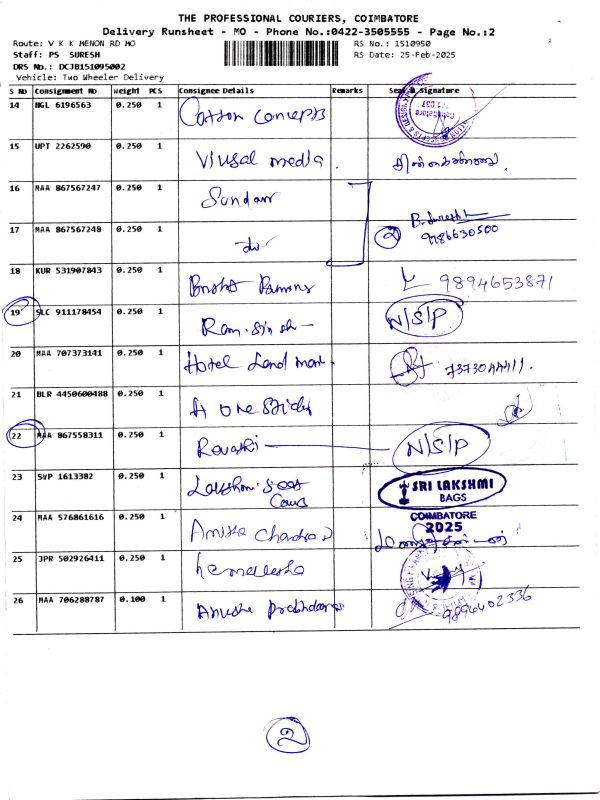 THE PROFESSIONAL COURIERS, COIMBATORE
Delivery Runsheet - MO - Phone No.:0422-3505555 - Page No.:2
Route: V K K MENON RD MO RS No.: 1510950
Staff: PS SURESH RS Date: 25-Feb-2025
DRS No.: DCJB151095002
Vehicle: Two Wheeler Delivery
S No Consignment No Weight PCS Consignee Details Remarks Seal & Signature
14 NGL 6196563 0.250 1 Cotton Concepts
15 UPT 2262590 0.250 1 Viusal media
16 MAA 867567247 0.250 1 Sundar
17 MAA 867567248 0.250 1 do 2 B. Suresh 9786630500
18 KUR 531907843 0.250 1 9894653871
19 SLC 911178454 0.250 1 Ram. N/S/P
20 MAA 707373141 0.250 1 Hotel Land mark
21 BLR 4450600488 0.250 1 A one
22 MAA 867558311 0.250 1 Revathi N/S/P
23 SVP 1613382 0.250 1 SRI LAKSHMI BAGS
COIMBATORE
24 MAA 576861616 0.250 1 Chandra 2025
25 JPR 502926411 0.250 1
26 MAA 706288787 0.100 1 Anusha 9894402336
2